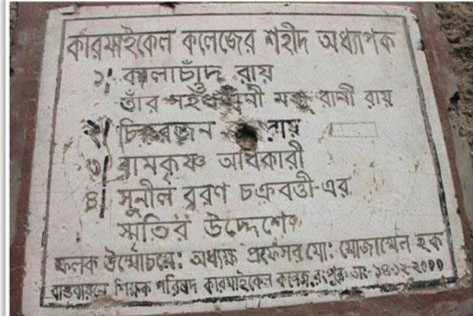 কারমাইকেল কলেজের শহীদ অধ্যাপক
১। কালাচাঁদ রায়
তাঁর সহধর্মিনী মঞ্জু রানী রায়
২। চিত্তরঞ্জন রায়
৩। রামকৃষ্ণ অধিকারী
৪। সুনীল বরণ চক্রবর্ত্তী-এর
স্মৃতির উদ্দেশ্যে
ফলক উম্মোচনে: অধ্যক্ষ প্রফেসর মো: মোজাম্মেল হক
বাস্তবায়নে শিক্ষক পরিষদ কারমাইকেল কলেজ, রংপুর তাং-১৪-১২-২০০০